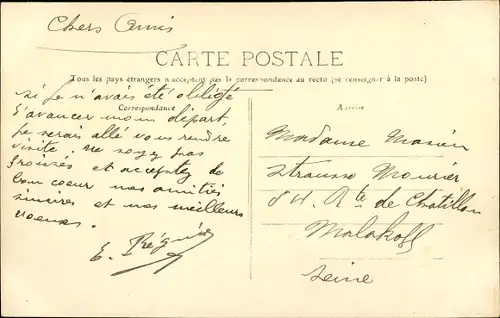 Chers Amis
CARTE POSTALE
Tous les pays étrangers n'acceptent pas la correspondance au recto (se renseigner à la poste)
Correspondance
Adresse
si je n'avais été obligé
d'avancer mon départ
je serais allé vous rendre
visite. ne soyez pas
froissés et acceptez de
bon coeur nos amitiés
sincères et nos meilleurs
voeux.
E. Régnier
Madame
Strausse Mounier
84. Rte de Chatillon
Malakoff
Seine